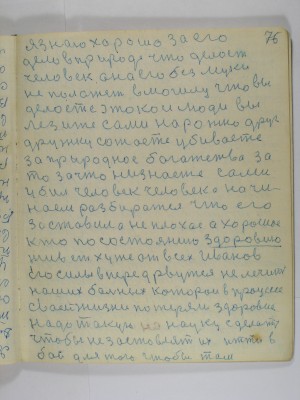 76
я знаю хорошо за его
дело в природе что делает
человек а на его без муки
не положет в могилу что вы
делаете этакои люди вы
лезите сами на рожно друг
дружку сотаете убиваете
за природное богатства за
то за что низнаете сами
убил человек человека начи
наем разбиратся что его
заставила неплохае а хорошае
кто по состоянию здоровию
живет хуже от всех Иванов
его силы вперед рвутся не лечит
наших балных которои в процесе
своеи жизни потеряли здоровие
надо такую на науку сделать
чтобы незаставлят их итти в
бои для того чтобы там